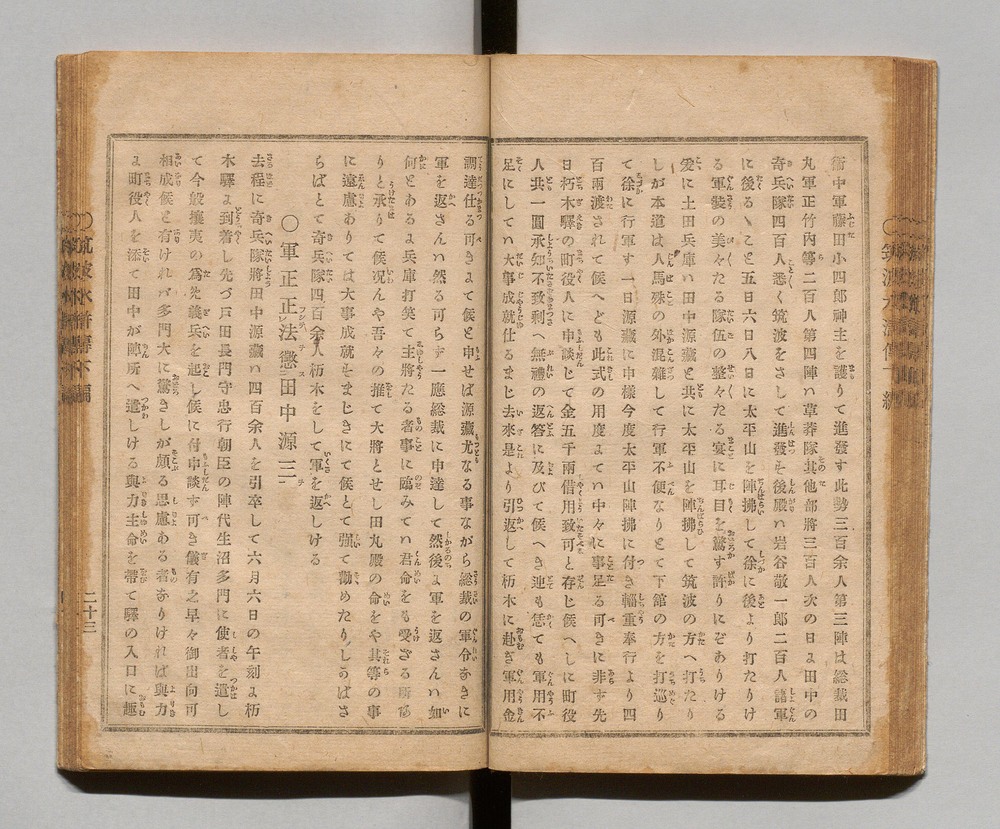 衛中軍藤田小四郎神主を護りて進發す此勢三百余人第三陣は総裁田
丸軍正竹内等二百人第四陣ハ草莽隊其他部將三百人次の日ょ田中の
奇兵隊四百人悉く筑波をさして進發を後殿ハ岩谷敬一郎二百人諸軍
に後るゝこと五日六日八日に太平山を陣拂して徐に後より打たりけ
る軍装の美々たる隊伍の整々たる宴に耳目を驚す許りにぞありける
爰に土田兵庫ハ田中源藏と共に太平山を陣拂して筑波の方へ打たり
しが本道は人馬殊の外混雜して行軍不便なりとて下舘の方を打巡り
て徐に行軍す一日源藏に申様今度太平山陣拂に付き輜重奉行より四
百兩渡されて候へども此式の用度ょてハ中々に事足る可きに非ず先
日朽木驛の町役人に申談じて金五千兩借用致可と存じ候へしに町役
人共一圓承知不致剩へ無禮の返答に及びて候へき迚も恁ても軍用不
足にしてハ大事成就仕るまじ去來是より引返して朽木に赴き軍用金
調達仕る可きょて候と申せば源藏尤なる事ながら総裁の軍令なきに
軍を返さんハ然る可らず一應総裁に申達して然後ょ軍を返さんハ如
何とあるょ兵庫打笑て主將たる者事に臨みてハ君命をも受ざる所
りと承りて候况んや吾々の推て大將とせし田丸殿の命をや其等の事
に遠慮ありてハ大事成就せまじきにて候とて强て勸めたりしさば
らばとて奇兵隊四百余人朽木をして軍を返しける
〇軍正正法懲田中源三
去程に奇兵隊將田中源藏ハ四百余人を引卒して六月六日の午刻ょ朽
木驛ょ到着し先づ戸田長門守忠行朝臣の陣代生沼多門に使者を遣し
て今般攘夷の爲先義兵を起し候に付申談ず可き儀有之早々御出向可
相成候と有けれバ多門大に驚きしが頗る思慮ある者なりければ與力
ょ町役人を添て田中が陣所へ遣しける與力主命を帶て驛の入口に趣
二十三